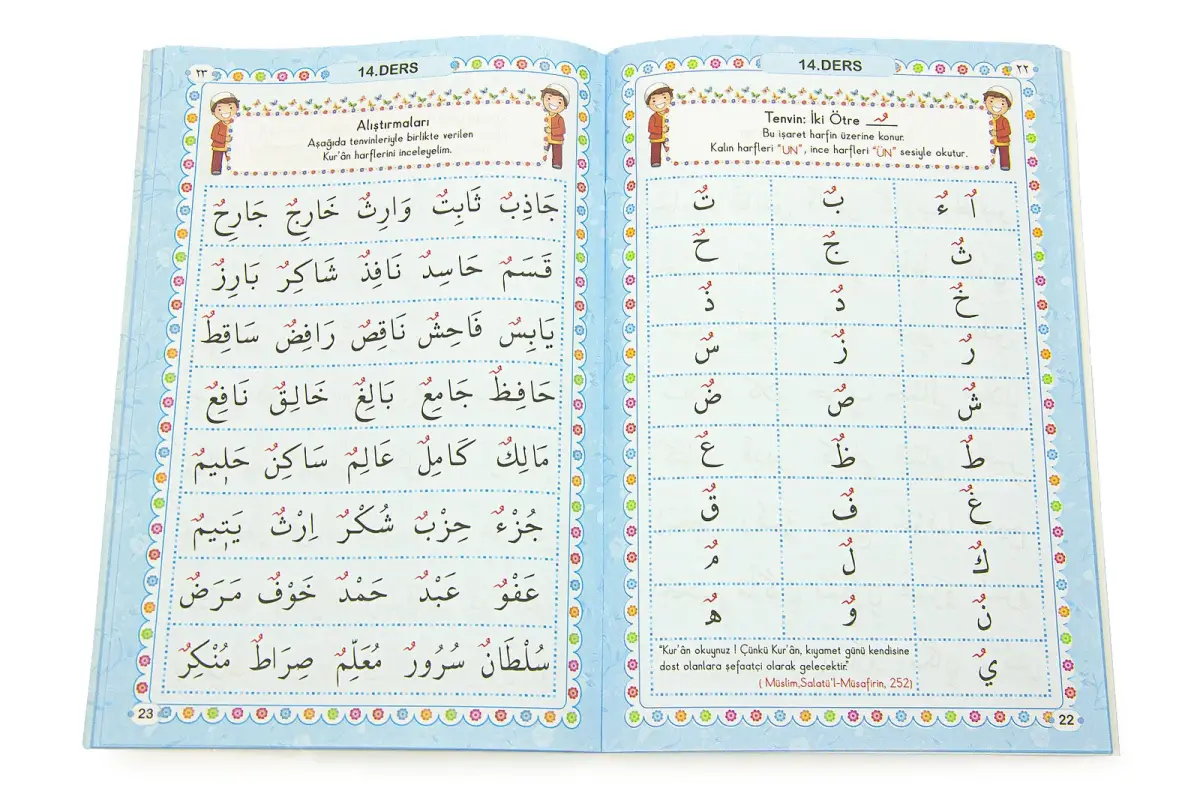 ٢٢
14.DERS
Tenvin: İki Ötre ـٌـ
Bu işaret harfin üzerine konur.
Kalın harfleri "UN", ince harfleri "ÜN" sesiyle okutur.
آٌ ءٌ بٌ تٌ
ثٌ جٌ حٌ
خٌ دٌ ذٌ
رٌ زٌ سٌ
شٌ صٌ ضٌ
طٌ ظٌ عٌ
غٌ فٌ قٌ
كٌ لٌ مٌ
نٌ وٌ هٌ
يٌ
"Kur'ân okuyunuz ! Çünkü Kur'ân, kıyamet günü kendisine
dost olanlara şefaatçi olarak gelecektir."
( Müslim,Salatü'l-Müsafirin, 252)
22
٢٣
14.DERS
Alıştırmaları
Aşağıda tenvinleriyle birlikte verilen
Kur'ân harflerini inceleyelim.
جَاذِبٌ ثَابِتٌ وَارِثٌ خَارِجٌ جَارِحٌ
قَسَمٌ حَاسِدٌ نَافِذٌ شَاكِرٌ بَارِزٌ
يَابِسٌ فَاحِشٌ نَاقِصٌ رَافِضٌ سَاقِطٌ
حَافِظٌ جَامِعٌ بَالِغٌ خَالِقٌ نَافِعٌ
مَالِكٌ كَامِلٌ عَالِمٌ سَاكِنٌ حَلِيمٌ
جُزْءٌ حِزْبٌ شُكْرٌ اِرْثٌ يَتِيمٌ
عَفْوٌ عَبْدٌ حَمْدٌ خَوْفٌ مَرَضٌ
سُلْطَانٌ سُرُورٌ مُعَلِّمٌ صِرَاطٌ مُنْكِرٌ
23